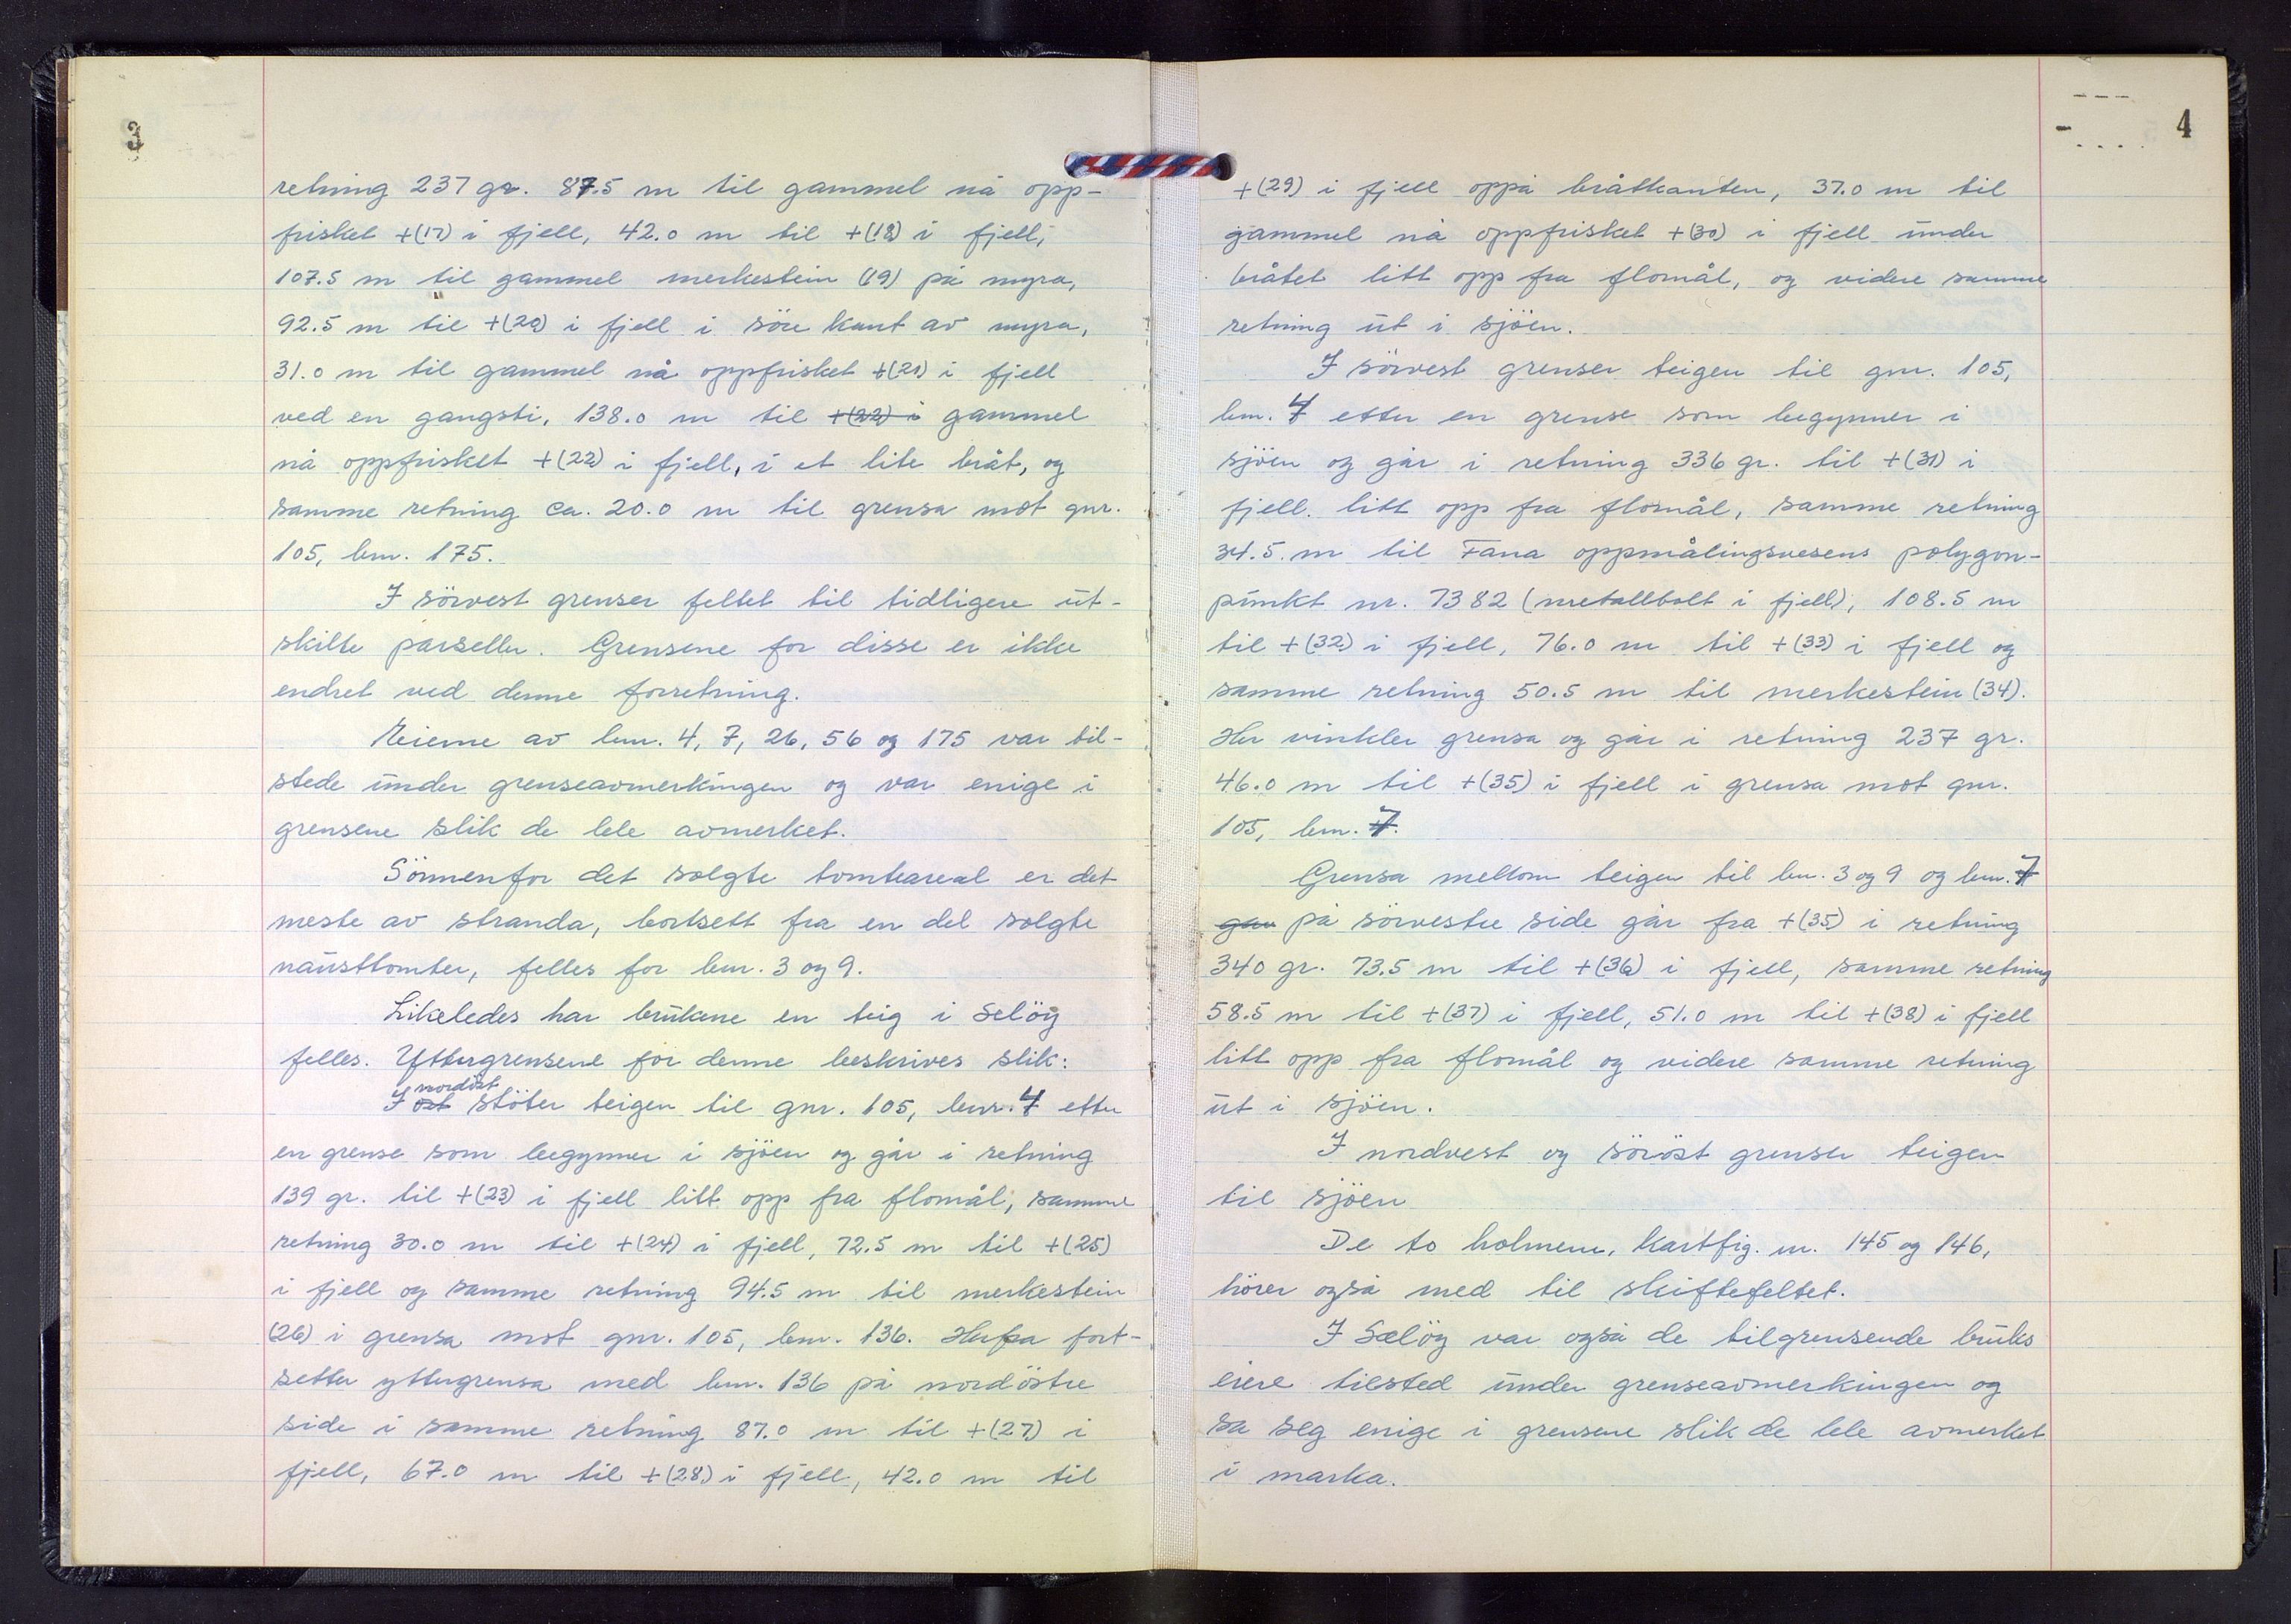 3
retning 237 gr. 87.5 m til gammel nå opp-
frisket +(17) i fjell, 42.0 m til +(18) i fjell,
107.5 m til gammel merkestein (19) på myra,
92.5 m til +(20) i fjell i söre kant av myra,
31.0 m til gammel nå oppfrisket +(21) i fjell
ved en gangsti, 138.0 m til +(22) i gammel
nå oppfrisket +(22) i fjell, i et lite bråt, og
samme retning ca. 20.0 m til grensa mot gnr.
105, bnr. 175.
I sörvest grenser feltet til tidligere ut-
skilte parseller. Grensene for disse er ikke
endret ved denne forretning.
Eierne av bnr. 4, 7, 26, 56 og 175 var til-
stede under grenseavmerkingen og var enige i
grensene slik de ble avmerket.
Sönnenfor det solgte tomteareal er det
meste av stranda, bortsett fra en del solgte
nausttomter, felles for bnr. 3 og 9.
Likeledes har brukene en teig i Selöy
felles. Yttergrensene for denne beskrives slik:
nordöst
I öst stöter teigen til gnr. 105, bnr. 4 etter
en grense som begynner i sjöen og går i retning
139 gr. til +(23) i fjell litt opp fra flomål, samme
retning 30.0 m til +(24) i fjell, 72.5 m til +(25)
i fjell og samme retning 94.5 m til merkestein
(26) i grensa mot gnr. 105, bnr. 136. Herfra fort-
setter yttergrensa med bnr. 136 på nordöstre
side i samme retning 87.0 m til +(27) i
fjell, 67.0 m til +(28) i fjell, 42.0 m til
4
+(29) i fjell oppå bråtkanten, 37.0 m til
gammel nå oppfrisket +(30) i fjell under
bråtet litt opp fra flomål, og videre samme
retning ut i sjöen.
I sörvest grenser teigen til gnr. 105,
bnr. 4 etter en grense som begynner i
sjöen og går i retning 336 gr. til +(31) i
fjell litt opp fra flomål, samme retning
34.5 m til Fana oppmålingsvesens polygon-
punkt nr. 7382 (metallbolt i fjell), 108.5 m
til +(32) i fjell, 76.0 m til +(33) i fjell og
samme retning 50.5 m til merkestein (34).
Her vinkler grensa og går i retning 237 gr.
46.0 m til +(35) i fjell i grensa mot gnr.
105, bnr. 7.
Grensa mellom teigen til bnr. 3 og 9 og bnr. 7
gav på sörvestre side går fra +(35) i retning
340 gr. 73.5 m til +(36) i fjell, samme retning
58.5 m til +(37) i fjell, 51.0 m til +(38) i fjell
litt opp fra flomål og videre samme retning
ut i sjöen.
I nordvest og söröst grenser teigen
til sjöen
De to holmene, kartfig. nr. 145 og 146,
hörer også med til skiftefeltet.
I Sælöy var også de tilgrensende bruks
eiere tilsted under grenseavmerkingen og
sa seg enige i grensene slik de ble avmerket
i marka.